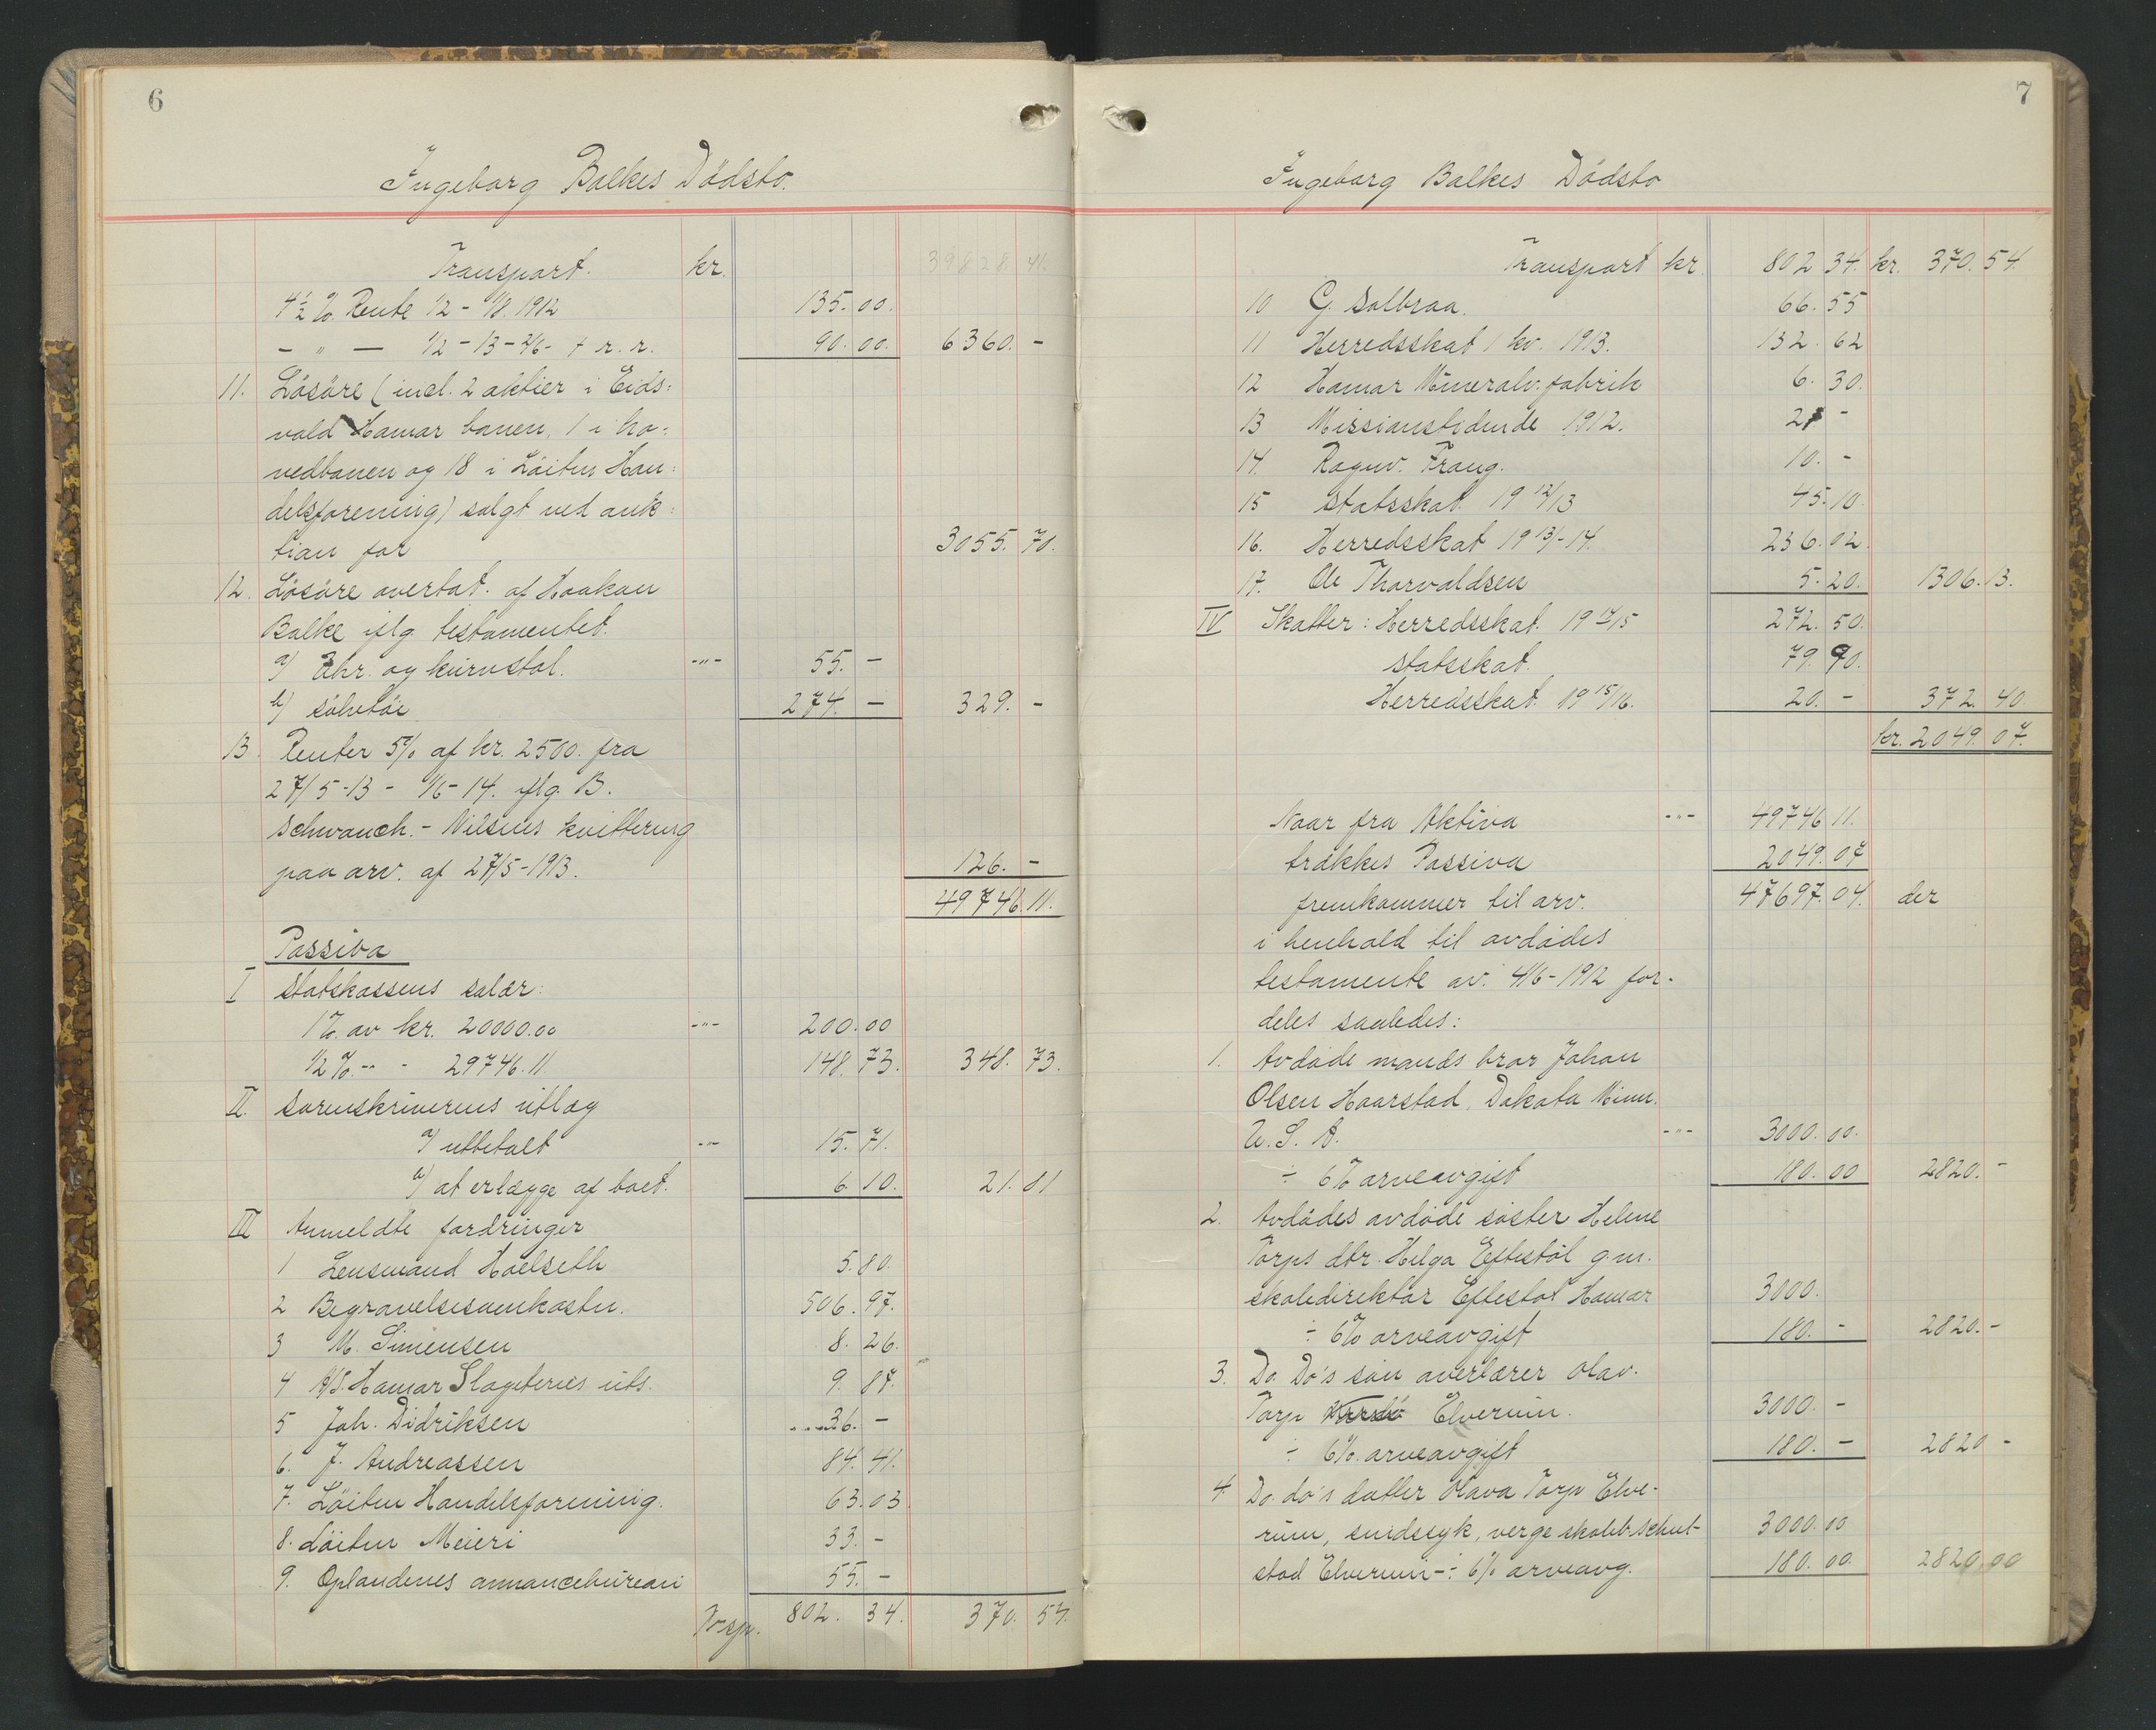 6
Ingeborg Balkes Dödsbo.
Transport. kr. 39828.41.
4½ % Rente 1/2 - 1/8. 1912 135.00.
- " - 1/2 - 13 - 2/6 - + r. r. 90.00. 6360. -
11. Lösöre (incl. 2 aktier i Eids=
vold Hamar banen, 1 i ho=
vedbanen og 18 i Löiten Han=
delsforening) solgt ved auk=
tion for 3055.70.
12. Lösöre overtat. af Haakon
Balke iflg. testamentet.
a) Uhr. og kurvstol. -"- 55. -
b) sölvtöi 274. - 329. -
13. Renter 5% af kr. 2500. fra
27/5-13 - 1/6-14. iflg. B.
Schwanch. - Nilsens kvittering
paa arv. af 27/5-1913. 126. -
49746.11.
Passiva
I Statskassens salær:
1% av kr. 20000.00 -"- 200.00
1/2 % -"- - 29746.11. 148.73. 348.73.
II. Sorenskriverens utlæg
a) utbetalt -"- 15.71.
b) at erlægge af boet. 6.10. 21.81
III Anmeldte fordringer
1 Lensmand Hoelseth 5.80.
2 Begravelsesomkostn. 506.97.
3 M. Simensen 8.26.
4 A/S. Hamar Slagteries uts. 9.87.
5 Joh. Didriksen 36. -
6. J. Andreassen 84.41.
7. Löiten Handelsforening. 63.03
8. Löiten Meieri 33. -
9. Oplandenes annoncebureau 55. -
Trsp. 802.34. 370.54.
7
Ingeborg Balkes Dödsbo
Transport kr. 802.34. kr. 370.54.
10 G. Solbraa. 66.55
11 Herredsskat 1 kv. 1913. 132.62
12 Hamar Mineralv. fabrik 6.30.
13 Missionstidende 1912. 2 -
14. Ragnv. Frang. 10. -
15 Statsskat 1912/13 45.10
16. Herredsskat 1913/-14. 236.02.
17. Ole Thorvaldsen 5.20. 1306.13.
IV Skatter: Herredsskat. 1914/15 272.50.
Statsskat. 79.90.
Herredsskat 1915/16. 20. - 372.40
kr. 2049.07.
Naar fra Aktiva -"- 49746.11.
trækkes Passiva 2049.07
fremkommer til arv. 47697.04. der
i henhold til avdödes
testamente av. 4/6-1912 for-
deles saaledes:
1. Avdöde mands bror Johan
Olsen Haarstad, Dakota Minn.
U. S. A. -"- 3000.00.
÷ 6% arveavgift 180.00 2820. -
2. Avdödes avdöde söster Helene
Torps dtr. Helga Eftestöl g.m.
skoledirektör Eftestöl Hamar 3000.
÷ 6% arveavgift 180. - 2820. -
3. Do. Do's sön overlærer Olav.
Torp Elverum. 3000. -
÷ 6% arveavgift 180. - 2820 -
4. Do. do's datter Olava Torp Elve-
rum, sindssyk, verge skoleb. Schul-
stad Elverum - ÷ 6% arveavg. 3000.00
180.00. 2820.00